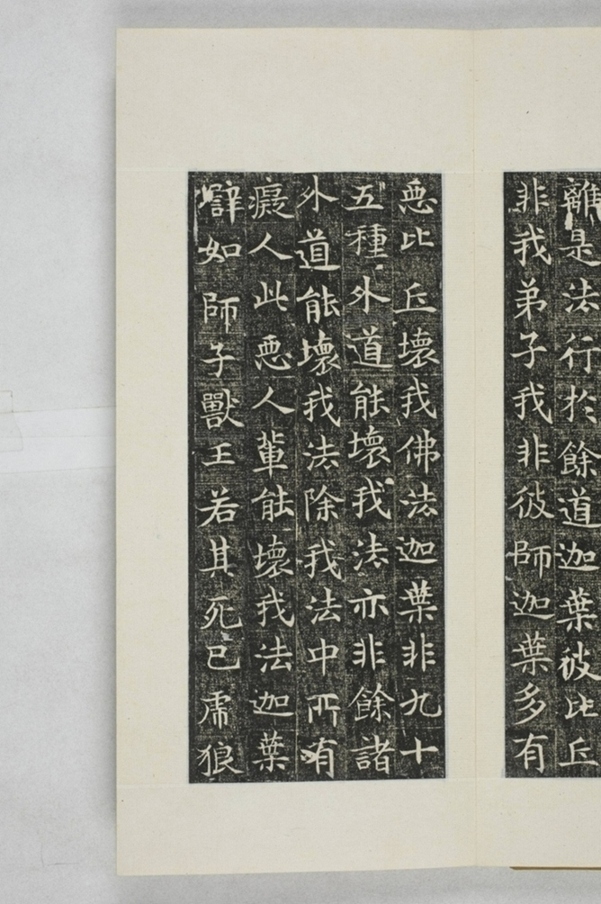 離是法行於餘道迦葉彼比丘
非我弟子我非彼師迦葉多有
惡比丘壞我佛法迦葉非九十
五種外道能壞我法亦非餘諸
外道能壞我法除我法中所有
癡人此惡人輩能壞我法迦葉
譬如師子獸王若其死已虎狼